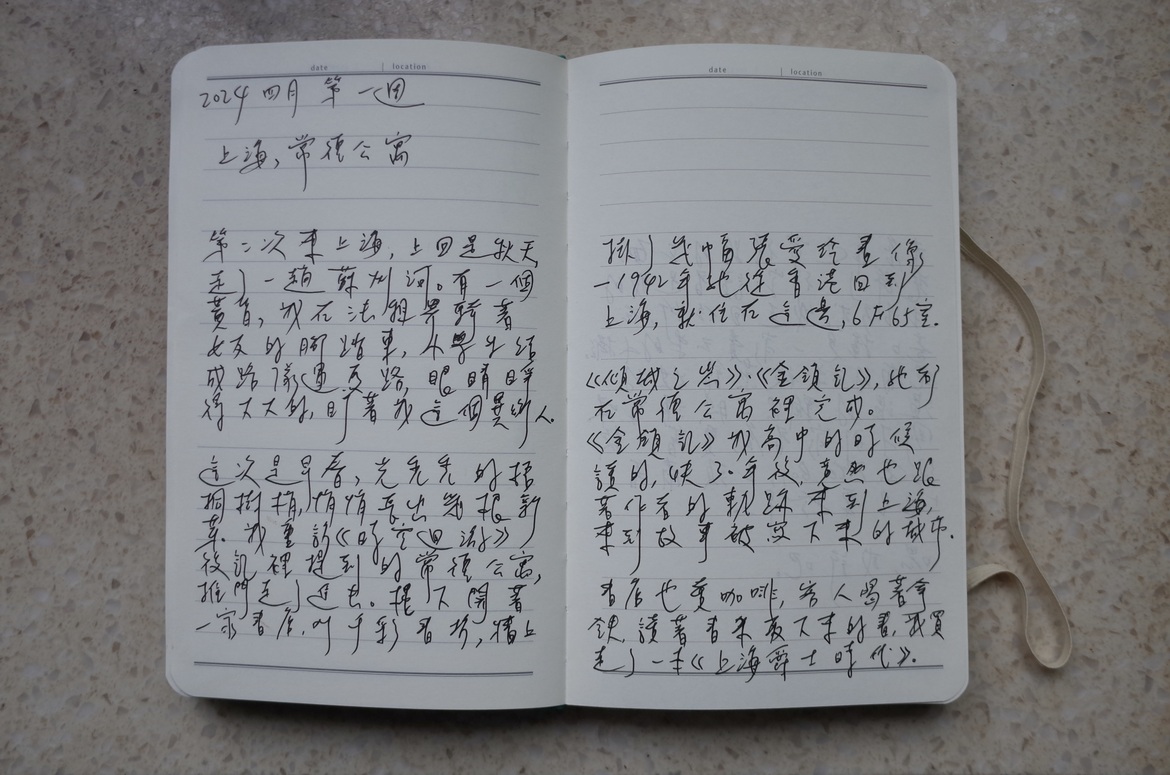 date | location
2024 四月 第一週
上海, 常德公寓
第二次來上海, 上回是秋天
走了一趟蘇州河。有一個
黃昏, 我在法租界騎著
女友的腳踏車, 小學生結
成路隊過馬路, 眼睛睜
得大大的, 盯著我這個異鄉人.
這次是早春, 光禿禿的梧
桐樹梢, 悄悄長出幾根新
葉. 我重訪《時空迴游》
後記裡提到的常德公寓,
推門走了進去。樓下開著
一家書店, 叫千彩書坊, 牆上
date | location
掛了幾幅張愛玲畫像
—1942年她從香港回到
上海, 就住在這邊, 6片65室.
《傾城之戀》.《金鎖記》, 她都
在常德公寓裡完成。
《金鎖記》我高中的時候
讀的, 快30年後, 竟然也跟
著作者的軌跡來到上海,
來到故事被寫下來的城市.
書店也賣咖啡, 客人喝著拿
鐵, 讀著書架取下來的書, 我買
走了一本《上海爵士時代》.